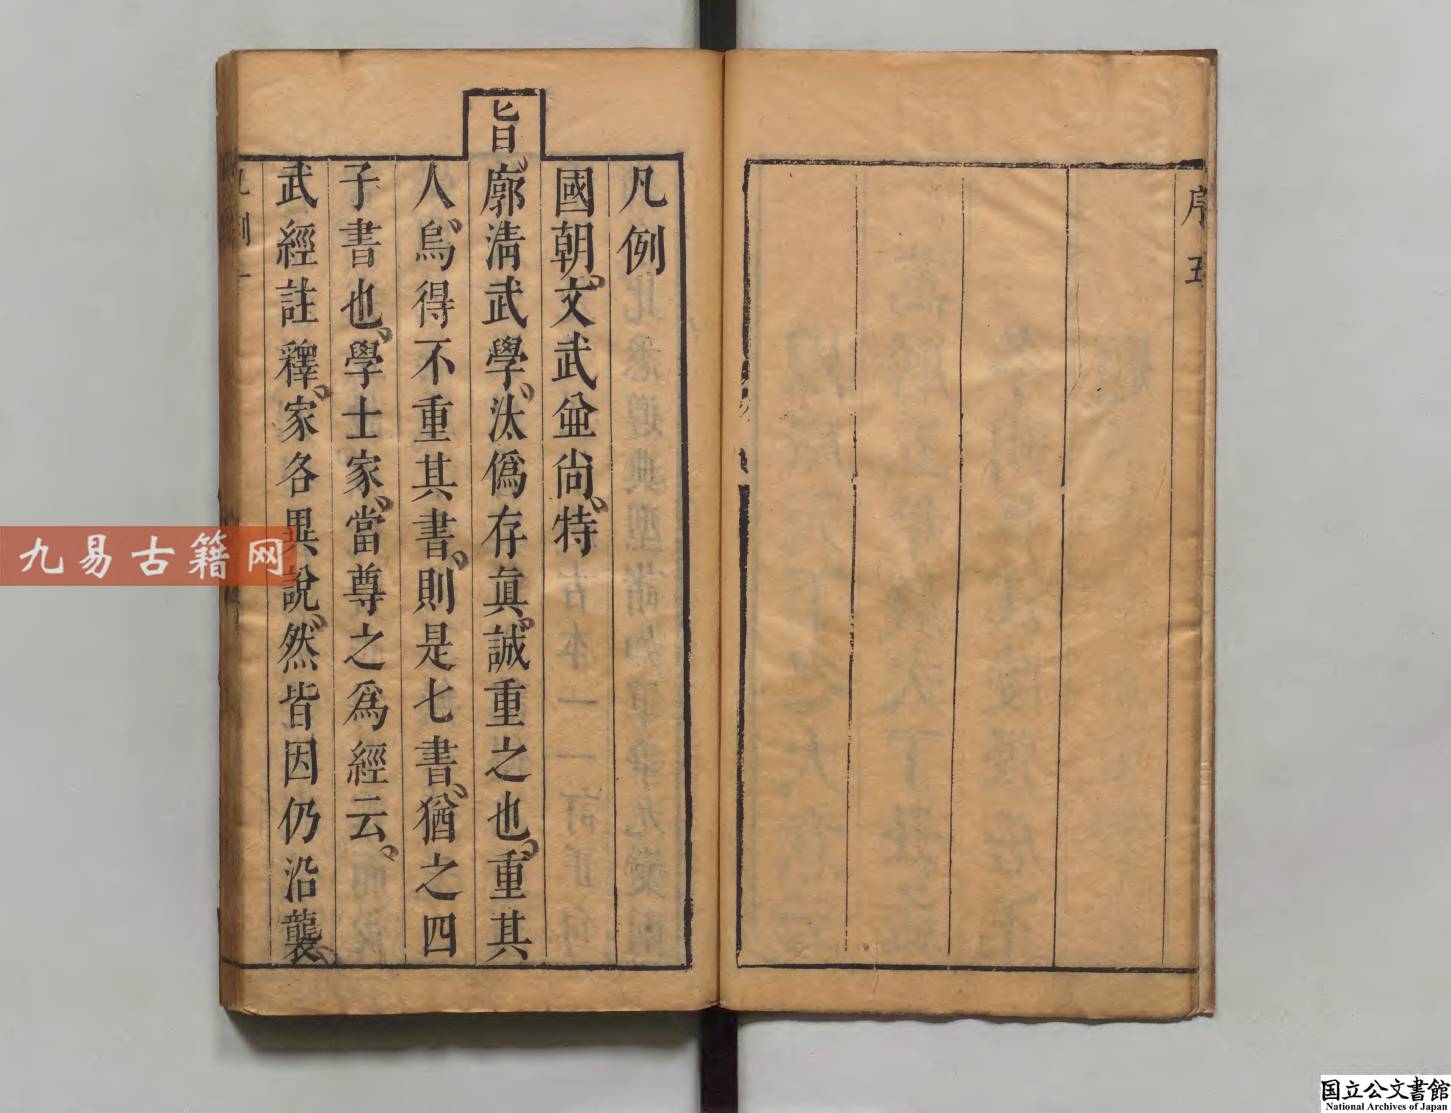 序五
凡例
國朝、文武並尚、特
旨、廓清武學、汰僞存眞、誠重之也、重其
人、烏得不重其書、則是七書、猶之四
子書也、學士家、當尊之爲經云、
武經註釋、家各異說、然皆因仍沿襲、
凡例一
九易古籍网
国立公文書館
National Archives of Japan